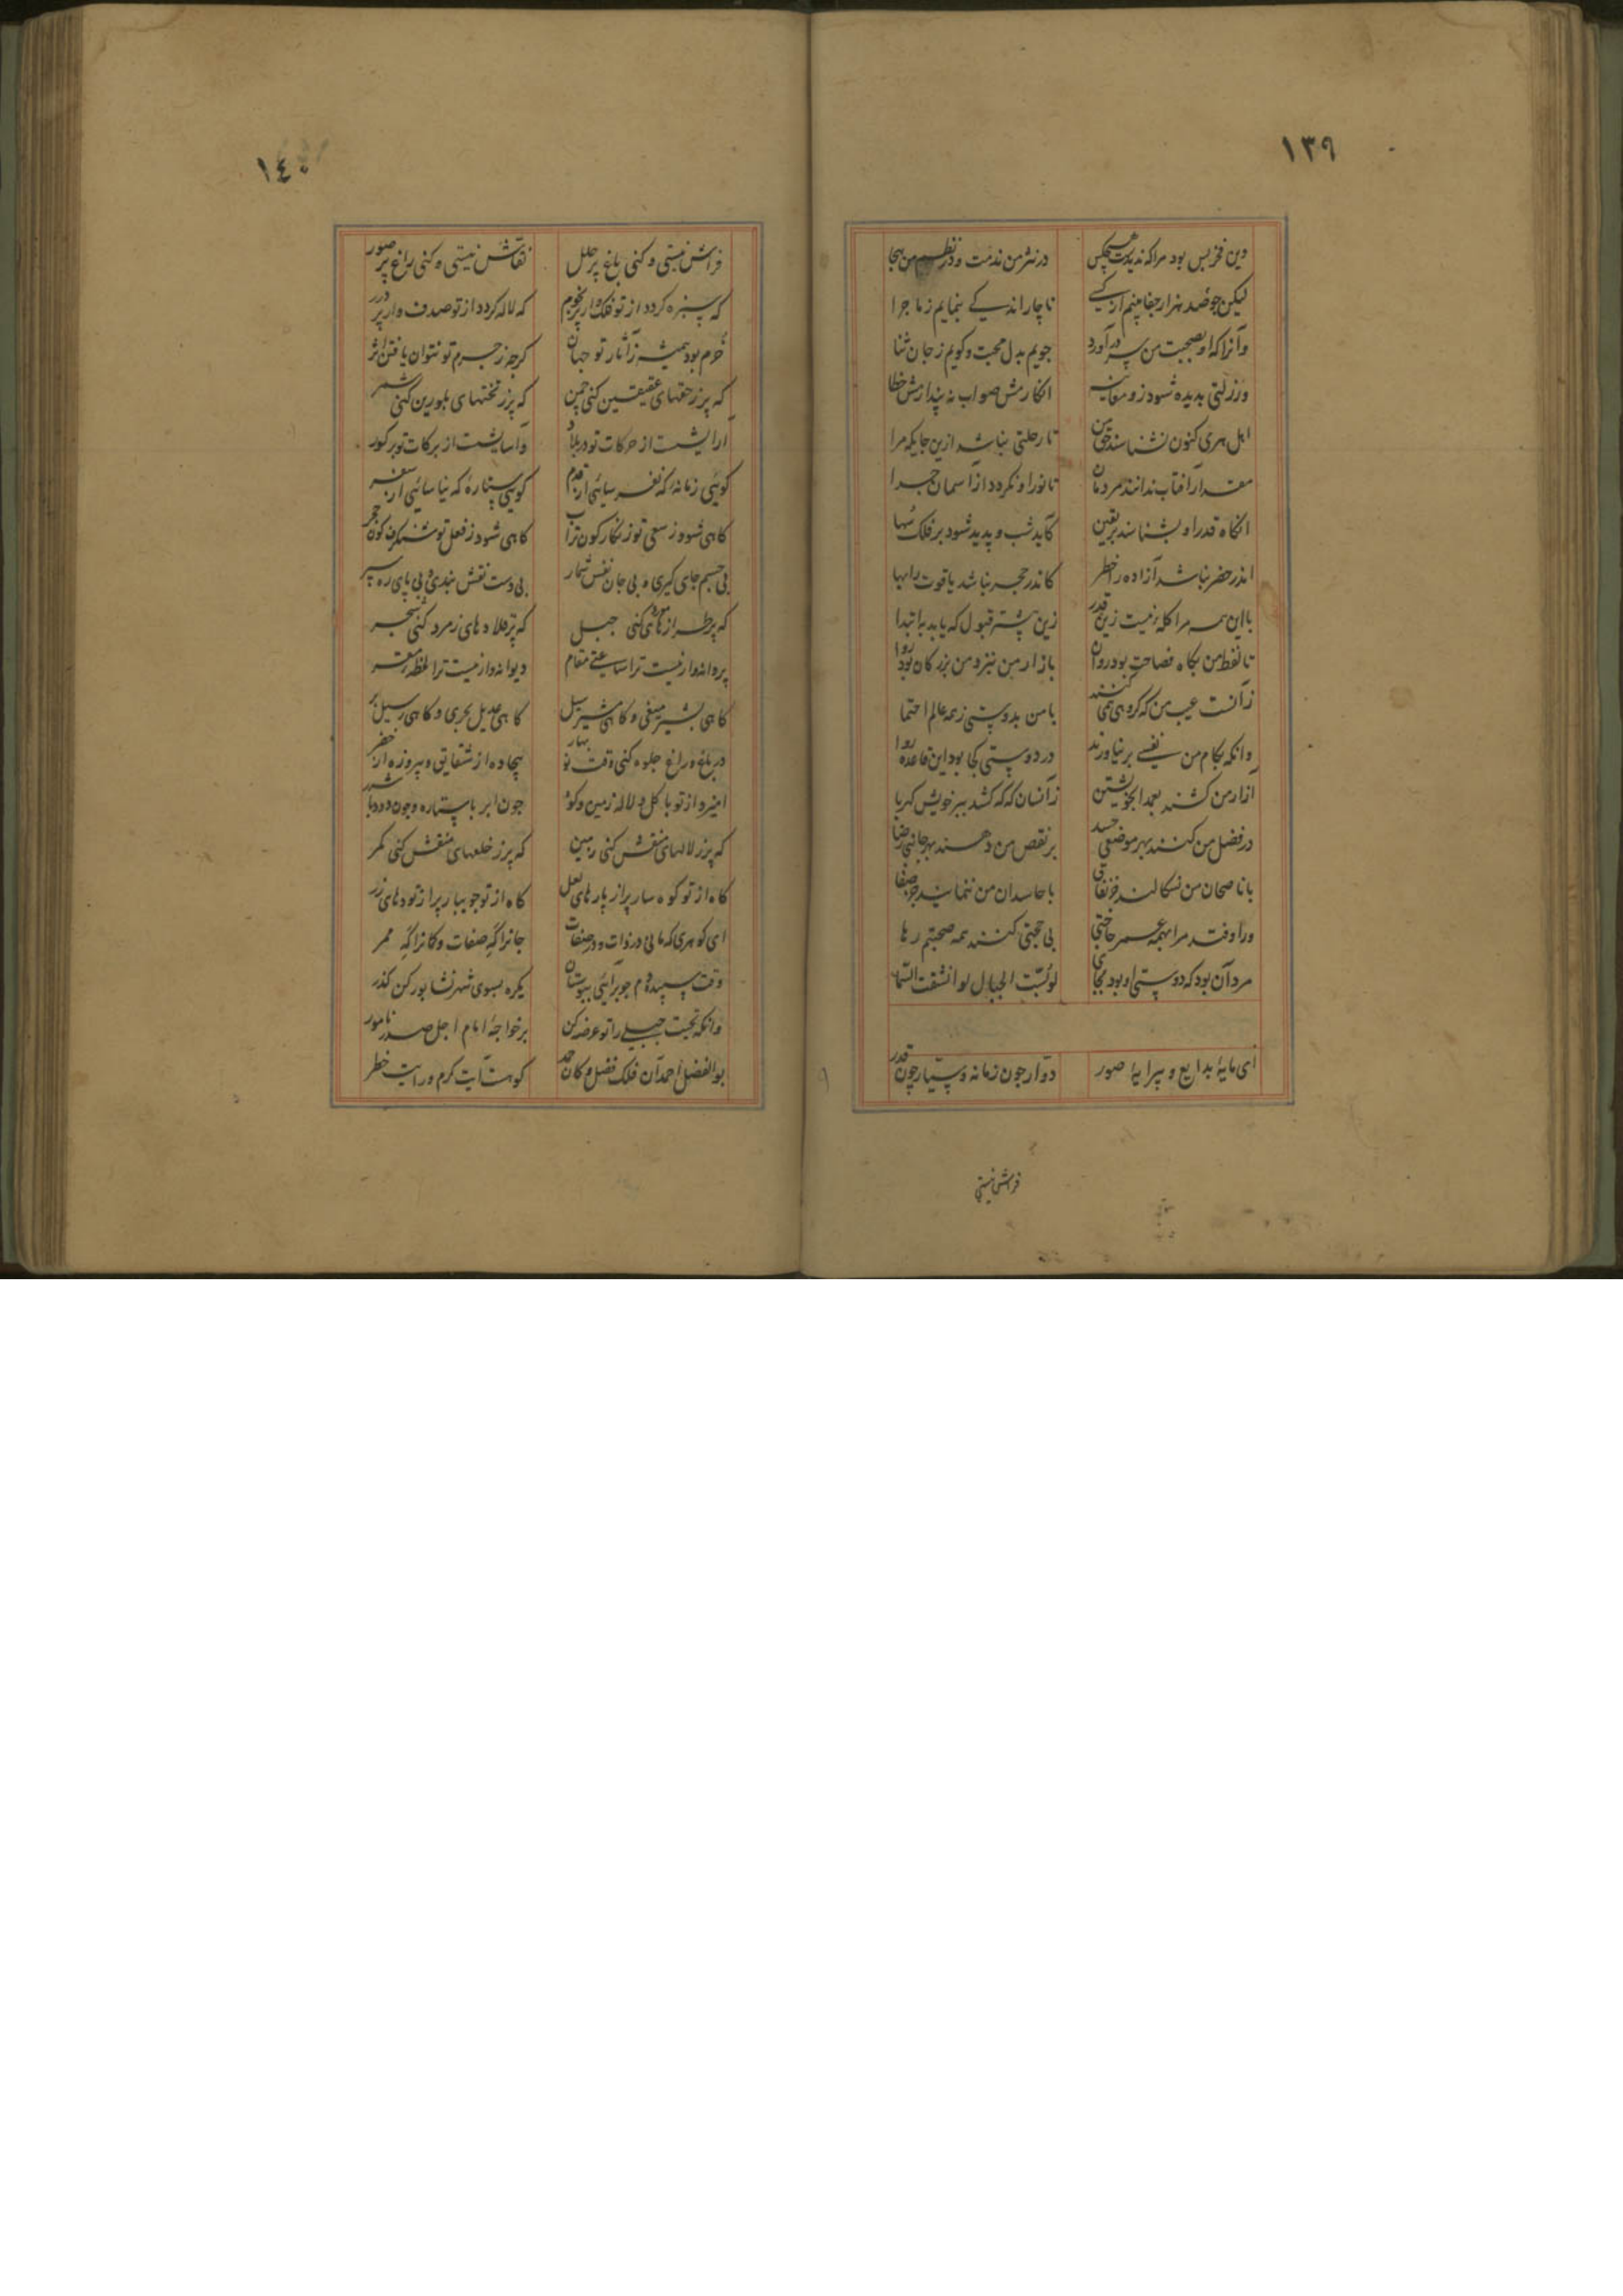 ١٣٩
وین فخر بس بود مرا که ندیدست هیچکس در نثر من مذمت و در نظم من هجا
لیکن چو صد هزار جفا بینم از کسی ناچار اندکی بنمایم ز ماجرا
وآنرا که او بصحبت من سر درآورد جویم بدل محبت و گویم ز جان ثنا
ور زلتی بدیده شود زو معاینه انکارمش صواب نه پندارمش خطا
اهل هری کنون نشناسند حق من تا رحلتی نباشد ازین جایگه مرا
مقدار آفتاب ندانند مردمان تا نور او نگردد از آسمان جدا
آنگاه قدر او بشناسند بر یقین کاید شب و پدید شود بر فلک سُها
اندر حضر نباشد آزاده را خطر کاندر حجر نباشد یاقوت را بها
با این همه مرا گله زمیست زین قدر زین پیشتر قبول که یابد به ابتدا
تا لفظ من بگاه فصاحت بود روان بازار من نبزد من بزرگان بود روا
زآنست عیب من که گروهی همی کنند با من بدوستی ز همه عالم احتما
وانگه بکام من نفسی بر نیاورند در دوستی کجا بود این قاعده روا
آزار من کشند بعمدا بخویشتن زآنسان که که کشد ببر خویش کهربا
در فضل من کنند بهر موضعی حسد بر نقص من دهند بهر جانبی رضا
با ناصحان من نسکالند جز نفاق با حاسدان من ننمایند جز صفا
ور اوفتد مرا بهمه عمر حاجتی بی حجتی کنند همه صحبتم رها
مرد آن بود که دوستی او بود بجای لو بُسّت الجبال لو انشقت السّما
ای مایۀ بدایع و پیرایۀ صور دوّار چون زمانه و سیّار چون قدر
فراش نیستی
١٤٠
فراش نیستی و کنی باغ پر حلل نقاش نیستی و کنی راغ پر صور
که سبزه گردد از تو فلک وار پر نجوم که لاله گردد از تو صدف وار پر درر
خرم بود همیشه ز آثار تو جهان گرچه ز جرم تو نتوان یافتن اثر
که پر ز حقهای عقیقین کنی چمن که پر ز تختهای بلورین کنی شمر
آرایشست از حرکات تو در بلاد وآسایشست از برکات تو بر کور
گویی زمانه‌ا که نفرسائی از قدم گویی ستارۀ که نیاسائی از سفر
گاهی شود ز سعی تو زنگار گون تراب گاهی شود ز فعل تو شنگرف گون حجر
بی جسم جای گیری و بی جان نفس شمار بی دست نقش بندی و بی پای ره سپر
که پر طراز های کنی جبل که پر قلاده های زمرد کنی شجر
پروانه وار نیست ترا ساعتی مقام دیوانه وار نیست ترا لحظۀ مقر
گاهی بشیر میغی و گاهی مشیر سیل گاهی عدیل بحری و گاهی رسیل بر
در باغ و راغ جلوه کنی وقت نوبهار بیجاده از شقایق و پیروزه از خضر
امیزد از تو با گل و لاله زمین و کوه چون ابر با ستاره و چون دود با شرر
که پر ز لالهای منقش کنی زمین که پر ز خلعهای منقش کنی کمر
گاه از تو کوهسار پر از پارهای لعل گاه از تو جویبار پر از تودهای زر
ای گوهری که مانی در ذات و در صفات جانرا گهِ صفات و کانرا گهِ ممر
وقت سپیده دم چو برآئی ببوستان یکره بسوی شهر نشابور کن گذر
وانگه تحیت جبلی را تو عرضه کن بر خواجۀ امام اجل صدر نامور
بوالفضل احمد آن فلک فضل و کان حمد کوهست آیت کرم و رایت خطر